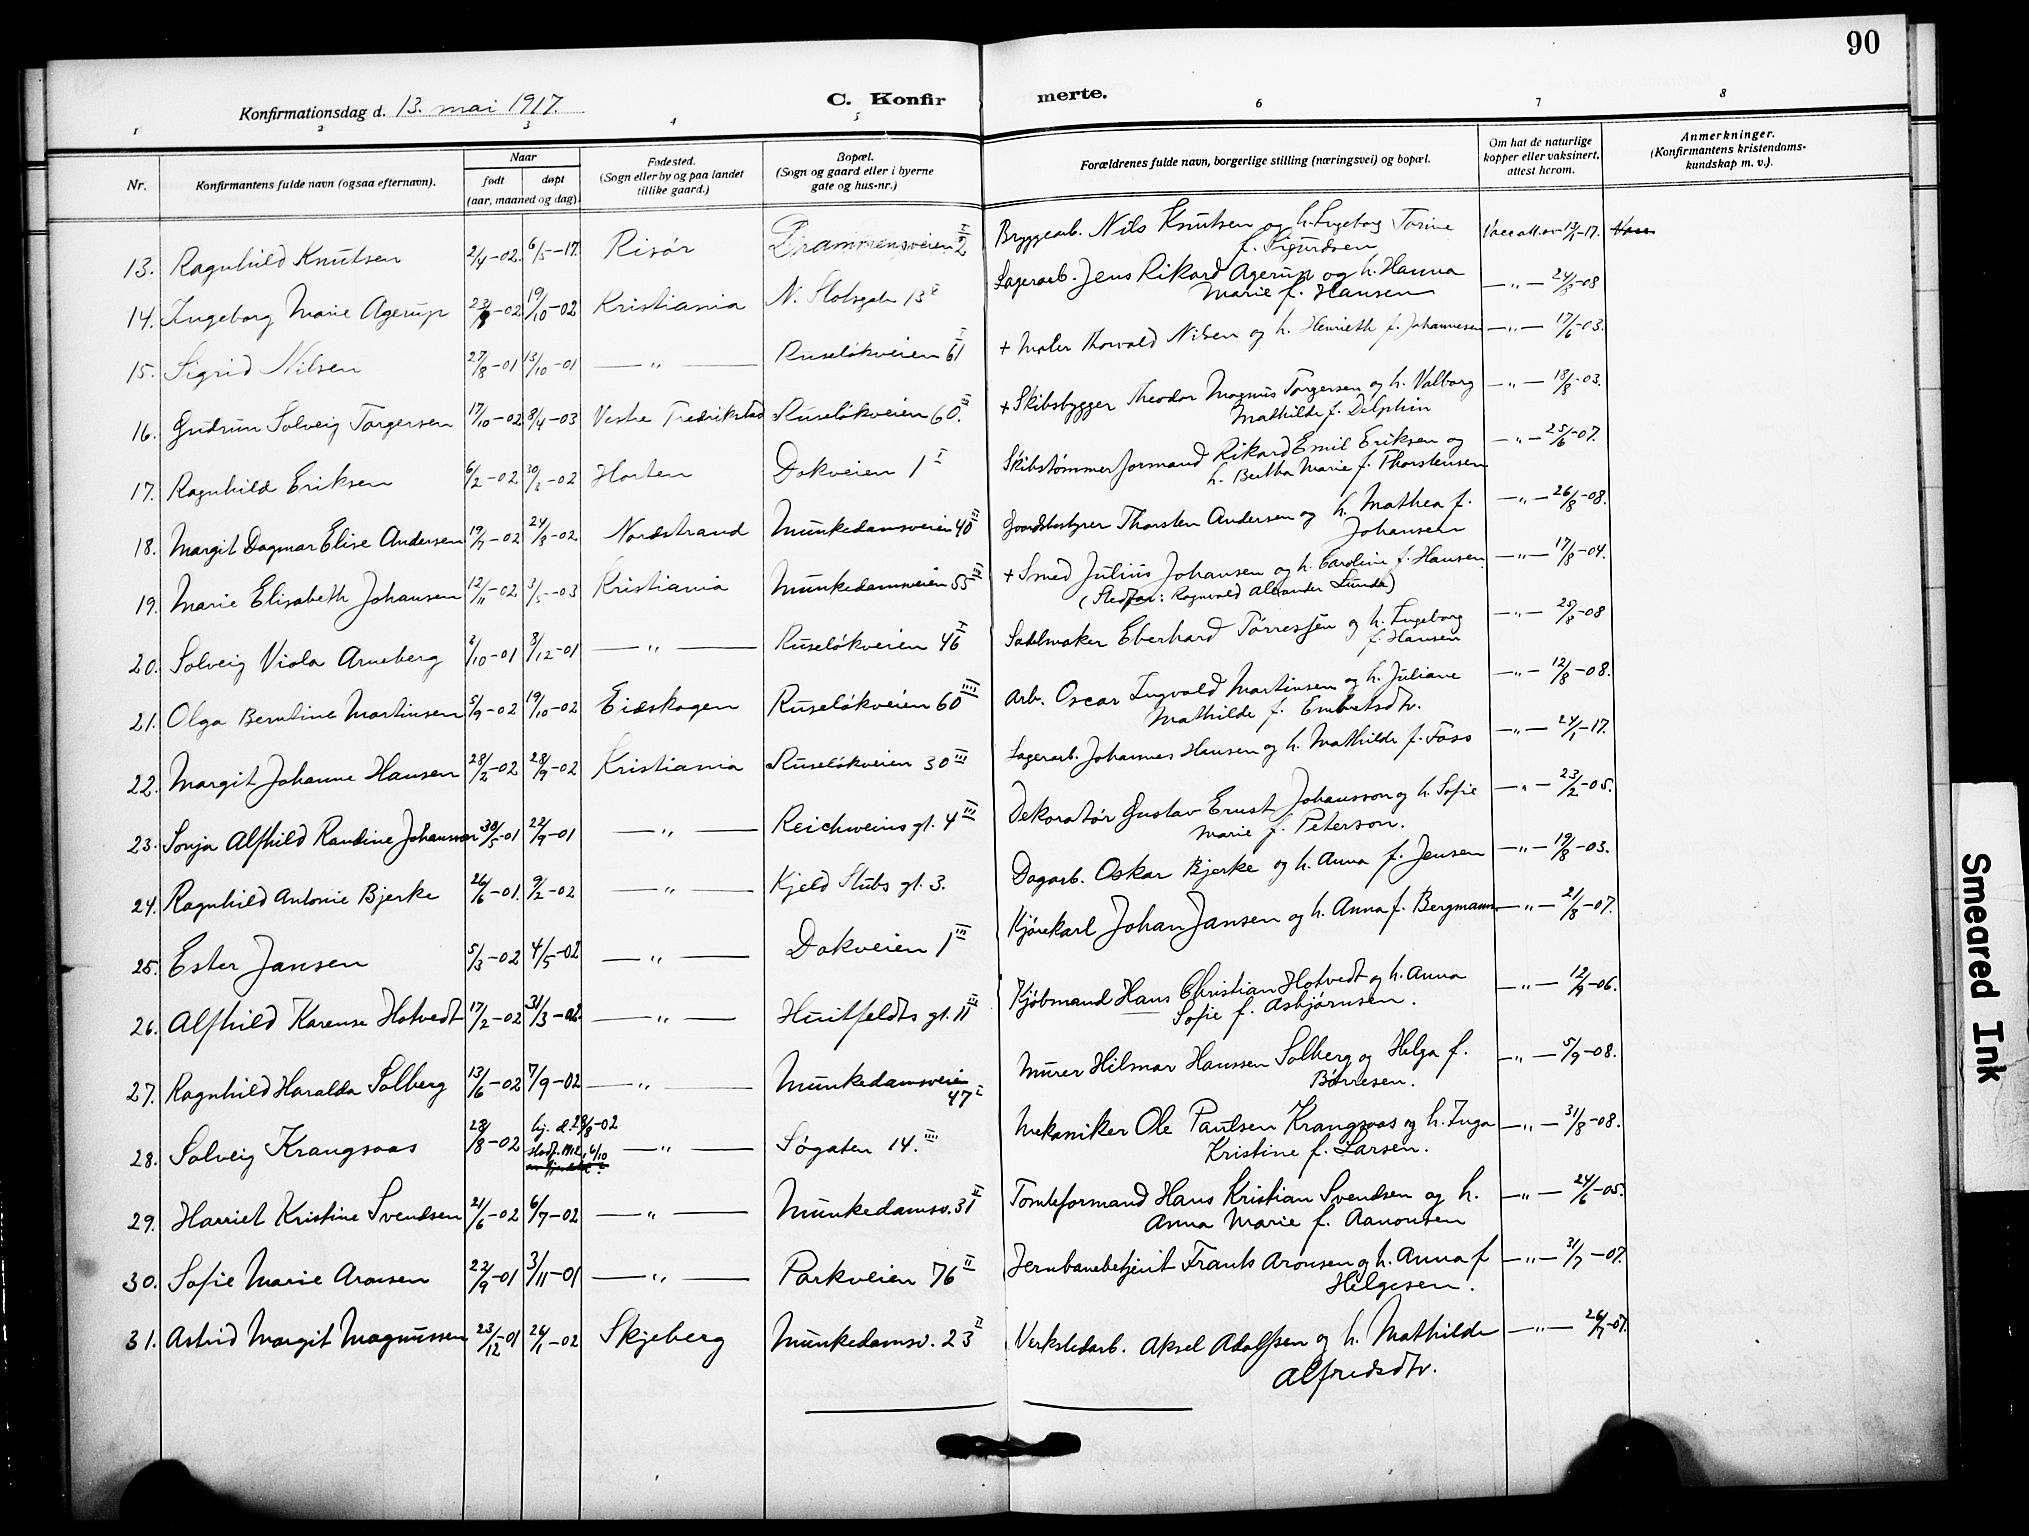 90
Konfirmationsdag d. 13. mai 1917.
C. Konfirmerte.
1 2 3 4 5 6 7 8
Nr.
Konfirmantens fulde navn (ogsaa efternavn).
Naar
født døpt
(aar, maaned og dag)
Fødested.
(Sogn eller by og paa landet
tillike gaard.)
Bopæl.
(Sogn og gaard eller i byerne
gate og hus-nr.)
Forældrenes fulde navn, borgerlige stilling (næringsvei) og bopæl.
Om hat de naturlige
kopper eller vaksinert,
attest herom.
Anmerkninger.
(Konfirmantens kristendoms-
kundskap m. v.).
13. Ragnhild Knutsen 2/4-02 6/5-17 Risør Drammensveien 2 Bryggearb. Nils Knutsen og h. Ingeborg Torine
f. Sigurdsen
14. Ingeborg Marie Agerup 23/8-02 19/10-02 Kristiania N. Slotsgate 13 Lagerarb. Jens Rikard Agerup og h. Hanna
Marie f. Hansen —"— 24/8-08
15. Sigrid Nilsen 27/8-01 13/10-01 —"— Ruseløkveien 61 I + Maler Thorvald Nilsen og h. Henrieth f. Johannesen —"— 17/6-03.
16. Gudrun Solveig Torgersen 17/10-02 8/4-03 Vestre Fredrikstad Ruseløkveien 60. III + Skibsbygger Theodor Magnus Torgersen og h. Valborg
Mathilde f. Delphin —"— 18/8-03.
17. Ragnhild Eriksen 6/2-02 Horten Dokveien 1 I Skibstømmerformand Rikard Emil Eriksen og
h. Bertha Marie f. Thorstensen —"— 25/6-07.
18. Margit Dagmar Elise Andersen 19/7-02 24/8-02 Nordstrand Munkedamsveien 40 III Gaardsbestyrer Thorsten Andersen og h. Mathea f.
Johansen —"— 26/8-08.
19. Marie Elisabeth Johansen 12/11-02 3/5-03 Kristiania Munkedamsveien 55 III + Smed Julius Johansen og h. Caroline f. Hansen
(Stedfar: Ragnvald Alexander Lunde) —"— 17/8-04.
20. Solveig Viola Arneberg 8/12-01 —"— Ruseløkveien 46 I Sadelmaker Eberhard Tørressen og h. Ingeborg
f. Hansen —"— 25/8-08
21. Olga Berntine Martinsen 5/9-02 19/10-02 Eidskogen Ruseløkveien 60 IIII Arb. Oscar Ingvald Martinsen og h. Juliane
Mathilde f. Embretsdtr. —"— 12/8-08.
22. Margit Johanne Hansen 28/2-02 28/9-02 Kristiania Ruseløkveien 30 III Lagerarb. Johannes Hansen og h. Mathilde f. Foss —"— 24/1-17.
23. Sonja Alfhild Randine Johansson 30/5-01 22/9-01 —"— Reichweins gt. 4 III Dekoratør Gustav Ernst Johansson og h. Sofie
Marie f. Peterson. —"— 23/2-05.
24. Ragnhild Antonie Bjerke 26/6-01. 9/2-02 —"— Kjeld Stubs gt. 3. Dagarb. Oskar Bjerke og h. Anna f. Jensen —"— 19/8-03.
25. Ester Jansen 5/3-02 4/5-02 —"— Dokveien 1 III Kjørekarl Johan Jansen og h. Anna f. Bergmann —"— 21/8-07.
26. Alfhild Karense Hotvedt 17/2-02 31/3-02 —"— Huitfeldts gt. 11 III Kjøbmand Hans Christian Hotvedt og h. Anna
Sofie f. Asbjørnsen. —"— 12/9-06.
27. Ragnhild Haralda Solberg 13/6-02 7/9-02 —"— Munkedamsveien
47 I Murer Hilmar Hanssen Solberg og Helga f.
Børresen. —"— 5/9-08.
28. Solveig Krangsaas 28/8-02 hj. d. 29/8-02
stadf. 1902, 6/10 —"— Søgaten 14. III Mekaniker Ole Paulsen Krangsaas og h. Inga
Kristine f. Larsen. —"— 31/8-08.
29. Harriet Kristine Svendsen 21/6-02 6/7-02 —"— Munkedamsv. 31 Tomteformand Hans Kristian Svendsen og h.
Anna Marie f. Aanonsen —"— 24/6-05.
30. Sofie Marie Aronsen 22/9-01 3/11-01 —"— Parkveien 76 II Jernbanebetjent Frants Aronsen og h. Anna f
Helgesen. —"— 31/7-07.
31. Astrid Margit Magnussen 23/12-01 26/1-02 Skjeberg Munkedamsv. 23 II Verkstedarb. Aksel Adolfsen og h. Mathilde
Alfredsdtr. —"— 26/7-07.
Smeared Ink